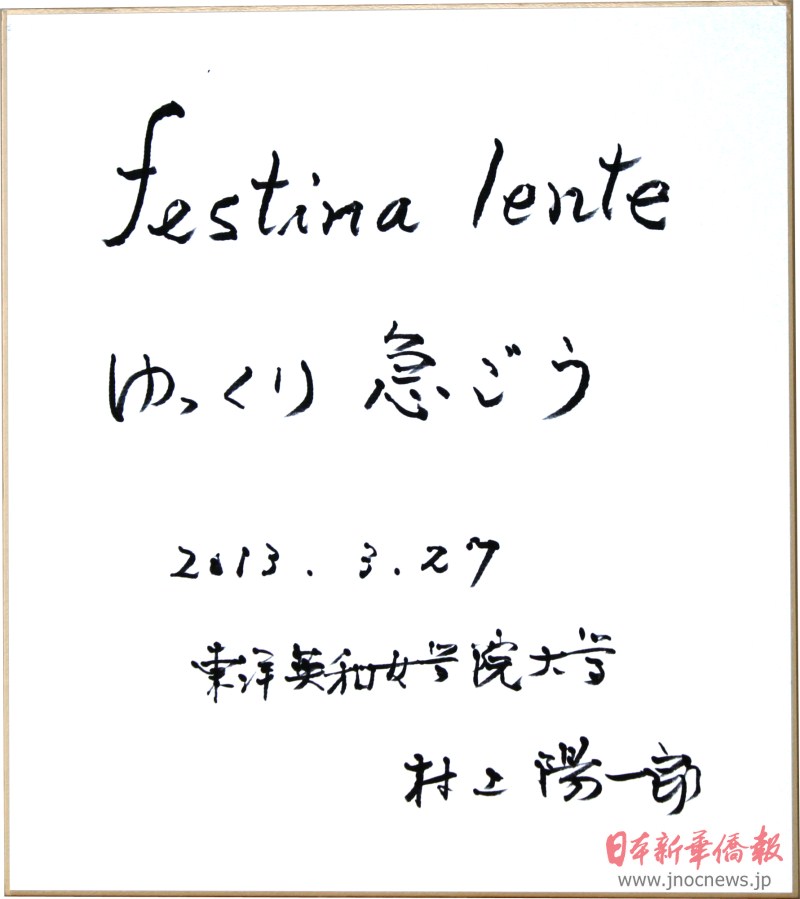 festina lente
ゆっくり 急ごう
2013.3.27
東洋英和女学院大学
村上陽一郎
日本新華僑報
www.jnocnews.jp